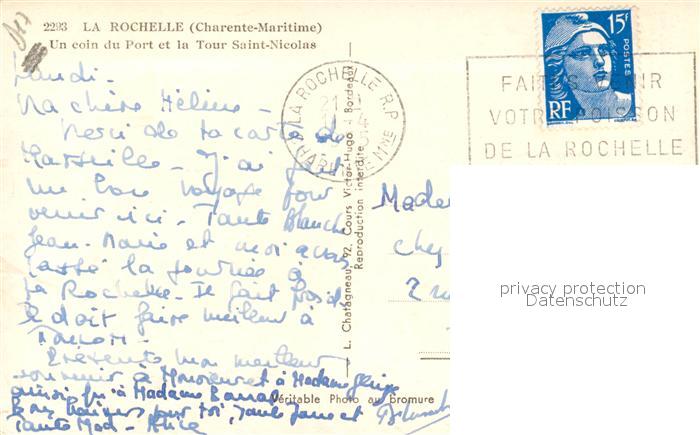 2293 LA ROCHELLE (Charente-Maritime)
Un coin du Port et la Tour Saint-Nicolas
Ma chère Hélène -
Merci de ta carte de
Marseille - J'ai fait
un bon voyage pour
venir ici. Tante Blanche
Jean-Marie et moi avons
passé la journée à
la Rochelle. Il fait froid
Il doit faire meilleur à
Présente mon meilleur
souvenir à Monsieur et à Madame
ainsi qu'à Madame
Bons baisers pour toi, Tante Jane et
Tante Mad - Alice
L. Chatagneau, 92, Cours Victor-Hugo, Bordeaux
Reproduction interdite
Véritable Photo au Bromure
LA ROCHELLE R.P.
21
CHARENTE Mme
15F
POSTES
RF
FAITES VENIR
VOTRE POISSON
DE LA ROCHELLE
Madame
chez
2 rue
privacy protection
Datenschutz